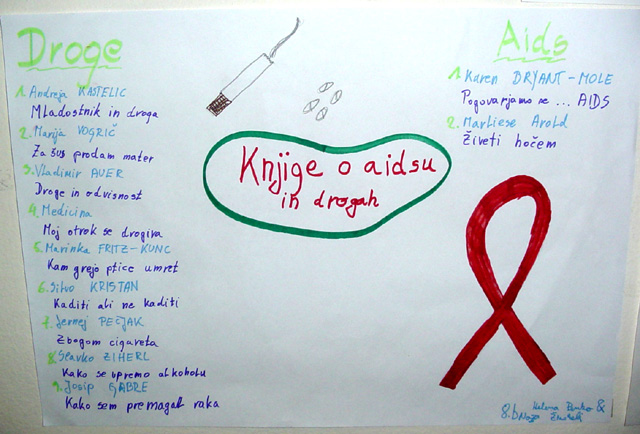 Droge
1. Andreja KASTELIC
Mladostnik in droga
2. Marija VOGRIČ
Za šus prodam mater
3. Vladimir AUER
Droge in odvisnost
4. Medicina
Moj otrok se drogira
5. Marinka FRITZ-KUNC
Kam grejo ptice umret
6. Silvo KRISTAN
Kaditi ali ne kaditi
7. Jernej PEČJAK
Zbogom cigareta
8. Slavko ZIHERL
Kako se upremo alkoholu
9. Josip GABRE
Kako sem premagal raka
Knjige o aidsu
in drogah
Aids
1. Karen BRYANT-MOLE
Pogovarjamo se ... AIDS
2. Marliese Arold
Živeti hočem
8.b
&